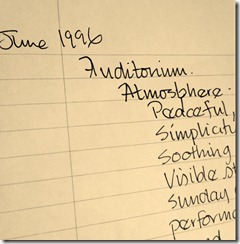 June 1996
Auditorium.
Atmosphere.
Peaceful,
Simplicit
Soothing
Visible
Sunday
performa